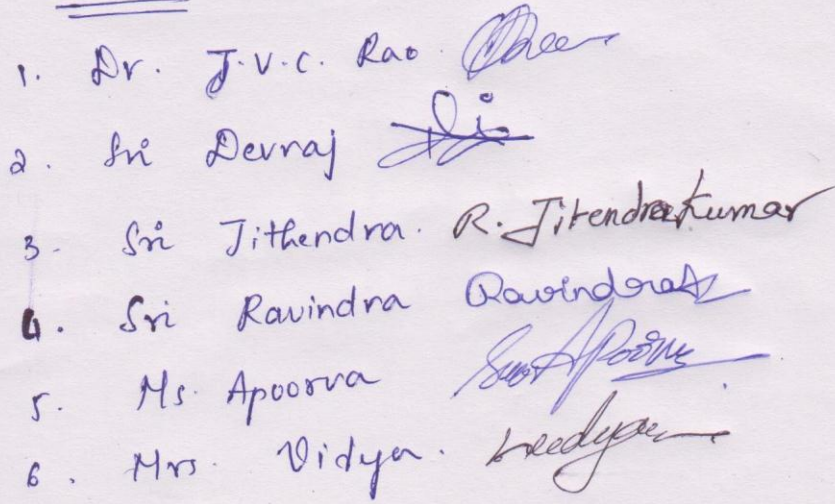 1. Dr. J.V.C. Rao
2. Sri Devraj
3. Sri Jithendra. R. Jitendra Kumar
4. Sri Ravindra Ravindra
5. Ms. Apoorva
6. Mrs. Vidya.